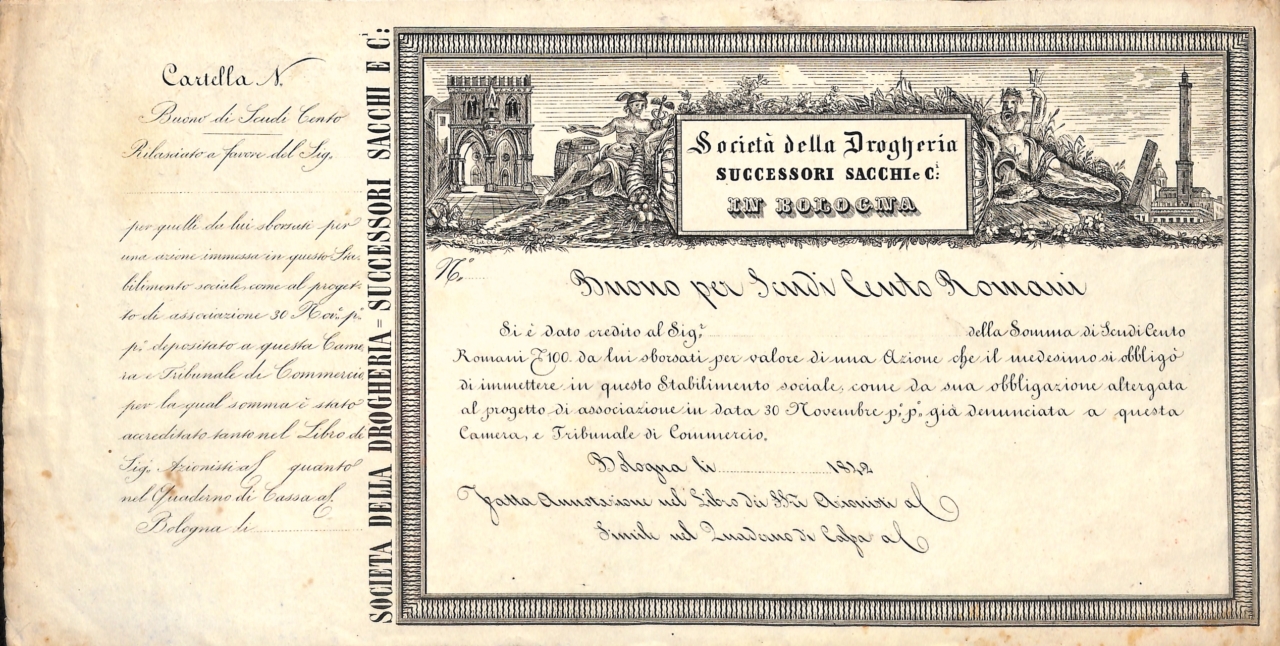 Cartella N.
Buono di Scudi Cento
Rilasciato a favore del Sig.
per quelli da lui sborsati per
una azione immessa in questo Sta-
bilimento sociale, come al proget-
to di associazione 30 Nov.e p.o
p.o depositato a questa Came
ra e Tribunale di Commercio,
per la qual somma è stato
accreditato tanto nel Libro de
Sig.i Azionisti al f. quanto
nel Quaderno di Cassa al f.
Bologna li
SOCIETA DELLA DROGHERIA = SUCCESSORI SACCHI E C.i
Società della Drogheria
SUCCESSORI SACCHI e C.i
IN BOLOGNA
N.o
Buono per Scudi Cento Romani
Si è dato credito al Sig.r della Somma di Scudi Cento
Romani 100. da lui sborsati per valore di una Azione che il medesimo si obbligò
di immettere in questo Stabilimento sociale, come da sua obbligazione altergata
al progetto di associazione in data 30 Novembre p.o p.o già denunciata a questa
Camera, e Tribunale di Commercio.
Bologna li 1842
Fatta Annotazione nel Libro dei SS.ri Azionisti al f
Simile nel Quaderno di Cassa al f